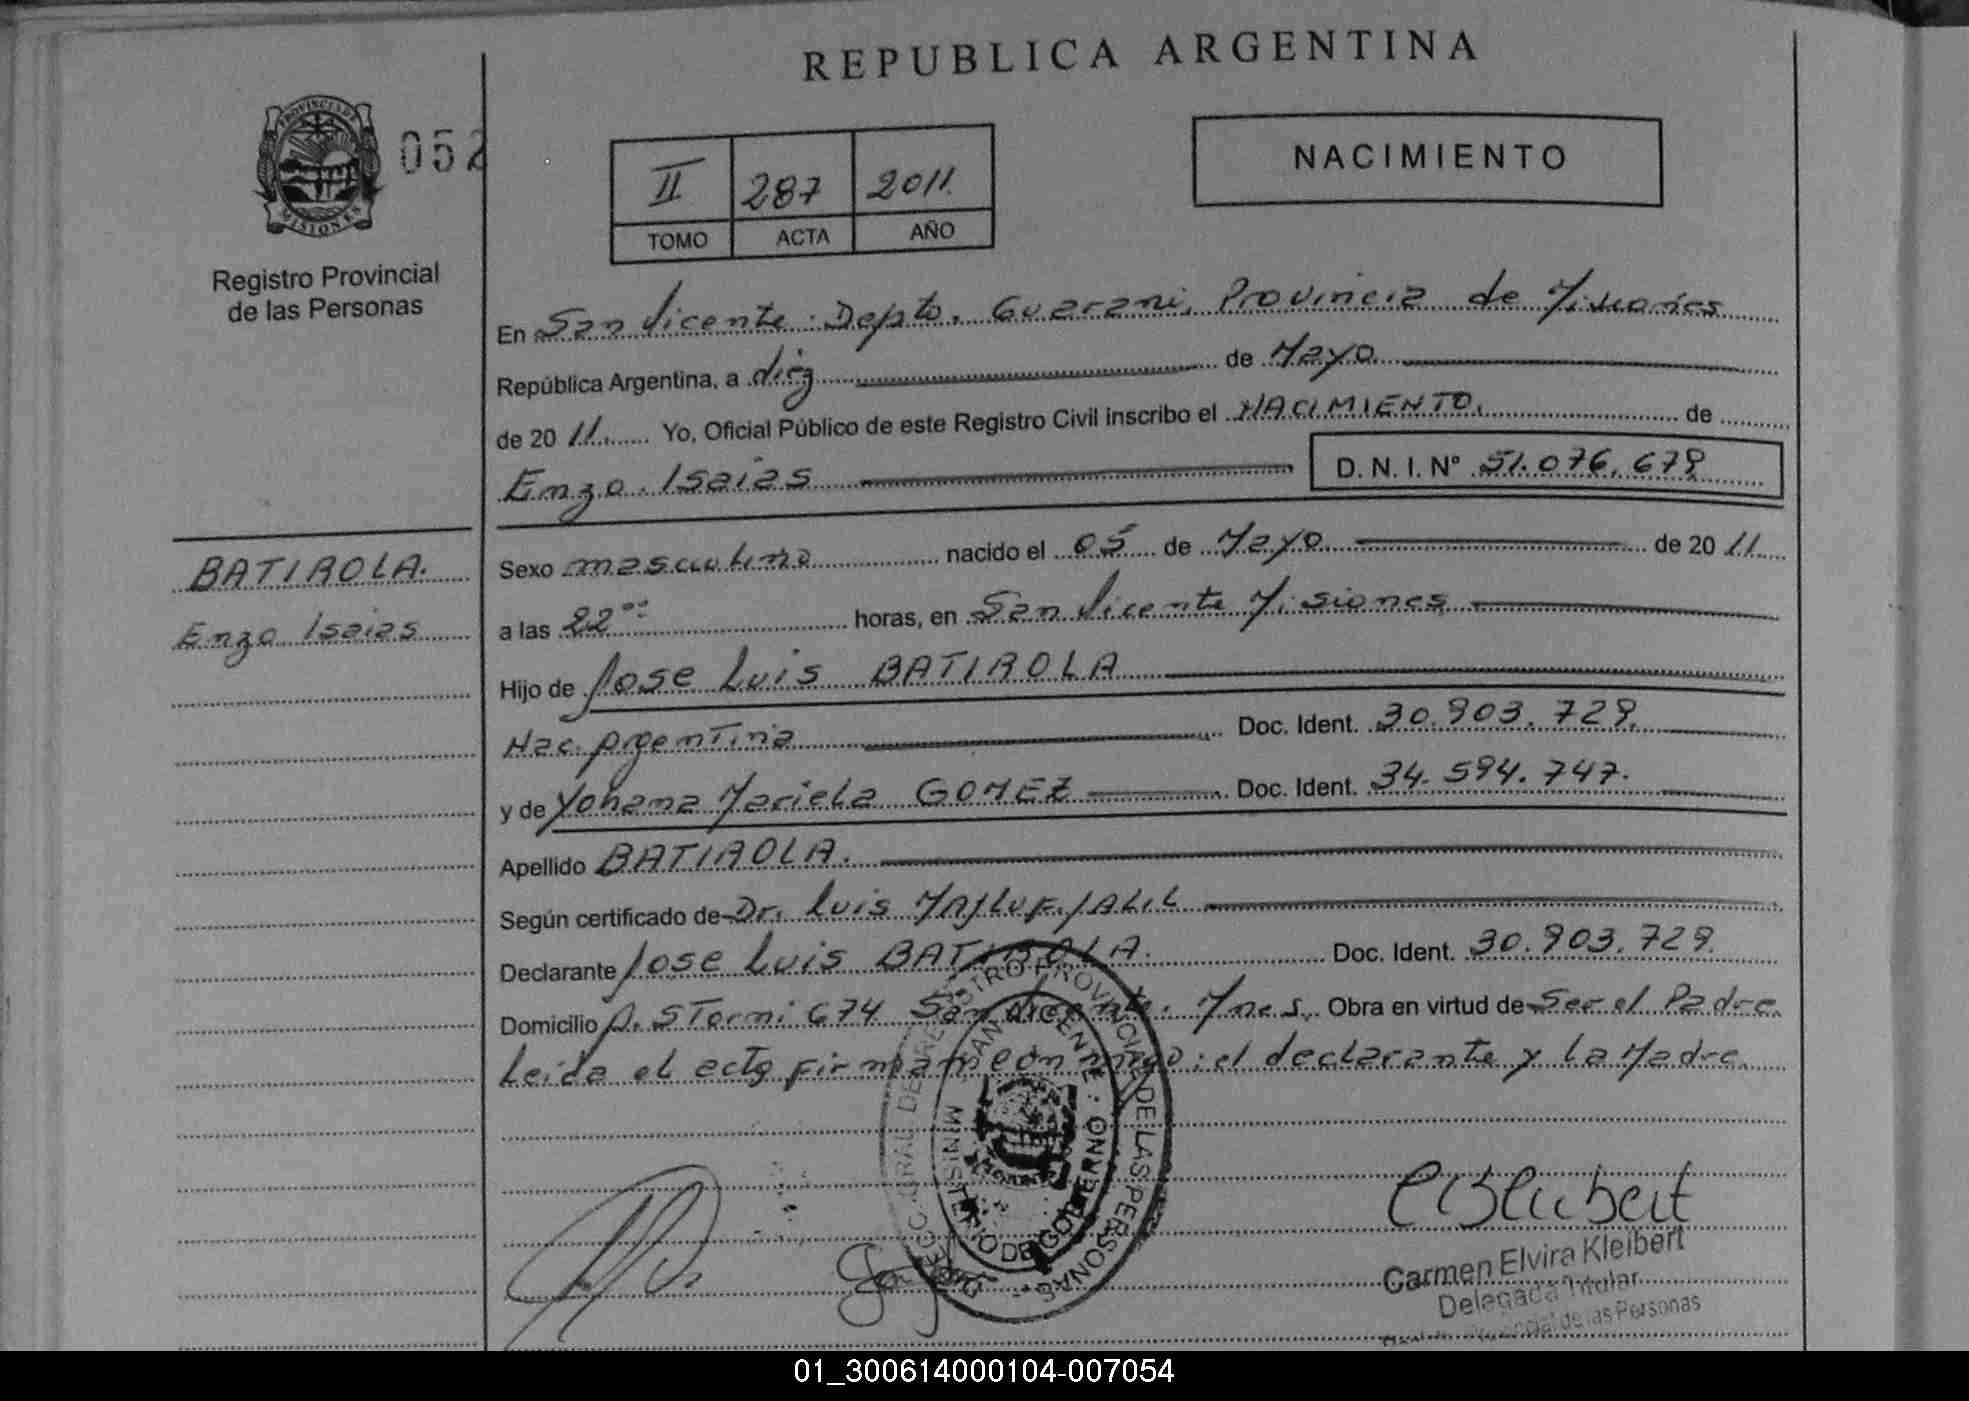 REPUBLICA ARGENTINA
052
NACIMIENTO
II 287 2011.
TOMO ACTA AÑO
PROVINCIA DE MISIONES
Registro Provincial
de las Personas
En San Vicente. Depto. Guarani, Provincia de Misiones
República Argentina, a diez de Mayo
de 2011. Yo, Oficial Público de este Registro Civil inscribo el NACIMIENTO. de
Enzo Isaias D. N. I. N° 51.076.679
BATIROLA.
Enzo Isaias
Sexo masculino nacido el 05 de Mayo de 2011
a las 22°° horas, en San Vicente Misiones
Hijo de Jose Luis BATIROLA
Nac. Argentina Doc. Ident. 30.903.729.
y de Yohana Mariela GOMEZ Doc. Ident. 34.594.747.
Apellido BATIROLA.
Según certificado de Dr. Luis JALIL
Declarante Jose Luis BATIROLA. Doc. Ident. 30.903.729.
Domicilio A. Storni 674 San Vicente. Mnes. Obra en virtud de Ser el Padre.
Leída el acta firman conmigo: el declarante y la Madre.
REGISTRO PROVINCIAL DE LAS PERSONAS
SAN VICENTE
MINISTERIO DE GOBIERNO
Carmen Elvira Kleibert
Delegada Titular
de las Personas
01_300614000104-007054